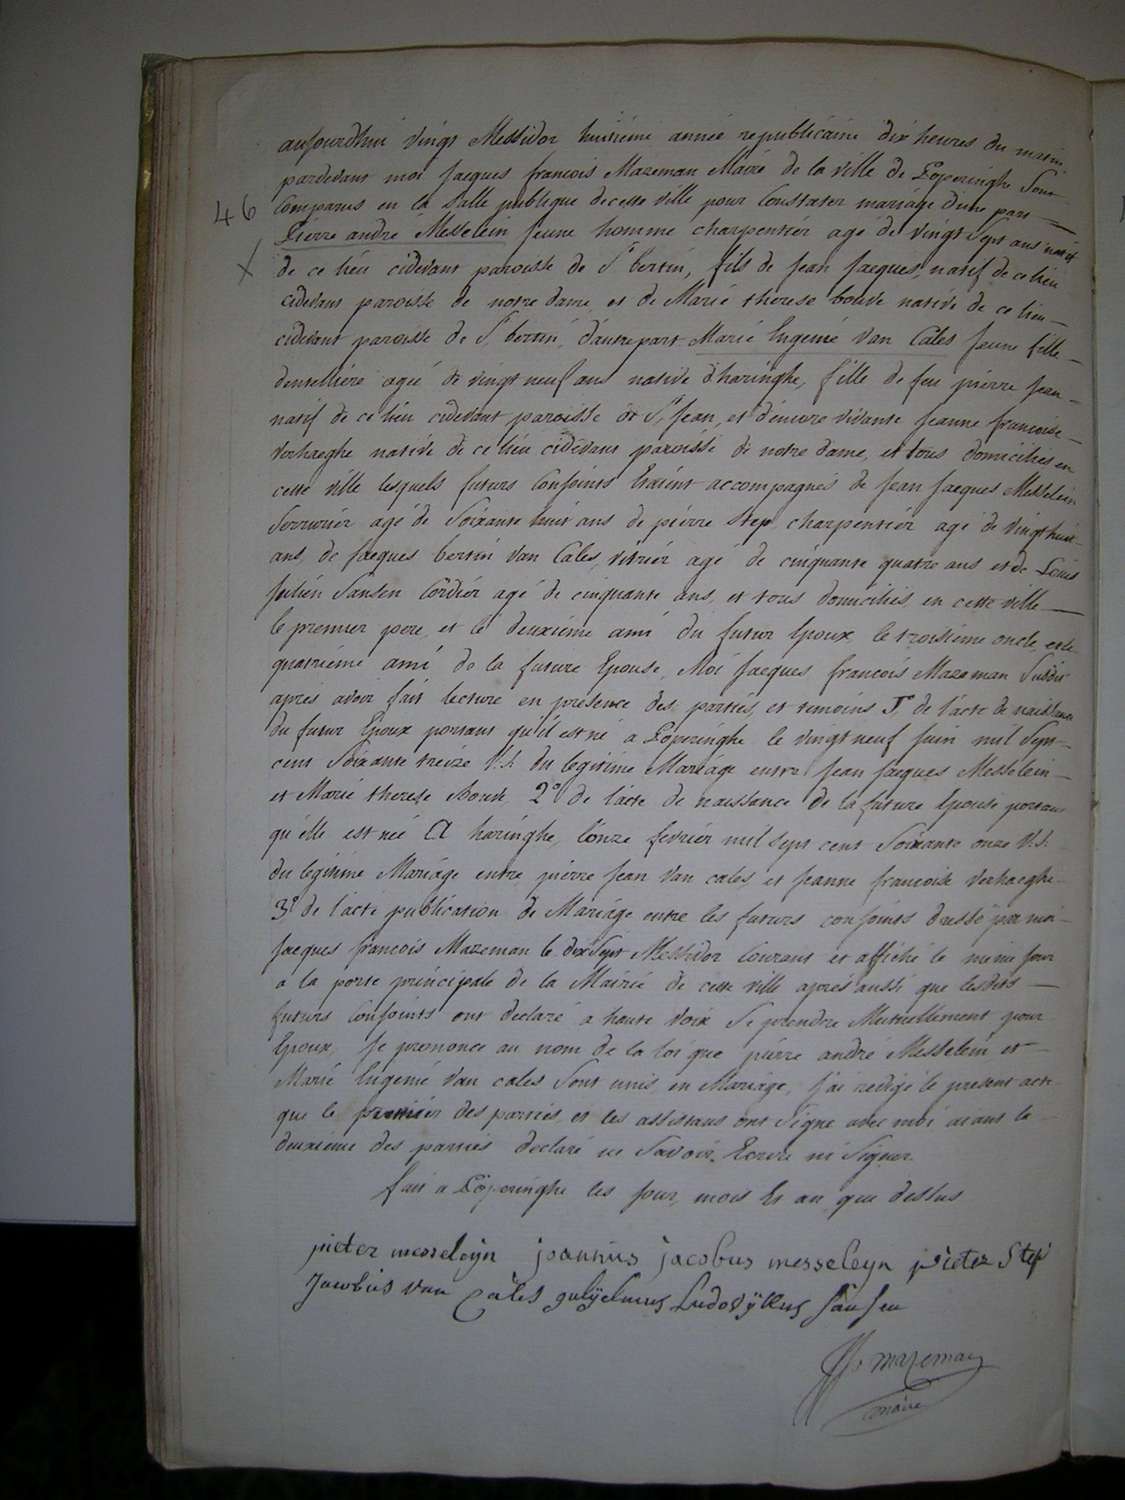 aujourdhui vingt Messidor huitiéme année republicaine dix heures du matin
pardevant moi Jacques francois Mazeman Maire de la ville de Poperinghe Sont
46 Comparus en la Salle publique de cette ville pour Constater mariage d'une part
Pierre andré Messelein Jeune homme charpentiér agé de vingt Sept ans natif
X de ce lieu cidevant paroisse de St bertin, fils de Jean Jacques, natif de ce lieu
cidevant paroisse de notre dame, et de Marie therese bouve native de ce lieu
cidevant paroisse de St bertin, d'autre part Marie Eugenie Van Cales Jeune fille
dentelliére agée de vingt neuf ans native d'haringhe, fille de feu piérre Jean
natif de ce lieu cidevant paroisse de St Jean, et d'encore vivante Jeanne francoise
Verhaeghe native de ce lieu cidevant paroisse de notre dame, et tous domiciliés en
cette ville lesquels futurs Conjoints Etaient accompagnés de Jean Jacques Messelein
Serruriér agé de Soixante huit ans de piérre Step charpentiér agé de vingt huit
ans, de Jacques bertin Van Cales, vitriér agé de cinquante quatre ans et de Louis
Julién Sansen Cordiér agé de cinquante ans, et tous domiciliés en cette ville
le premier pere, et le deuxiéme ami du futur Epoux, le troisiéme oncle, et le
quatriéme ami de la future Epouse, Moi Jacques francois Mazeman Susdit
aprés avoir fait lecture en présence des parties, et temoins 1° de l'acte de naissance
du futur Epoux portant qu'il est né a Poperinghe le vingt neuf Juin mil Sept
cent Soixante treize V.S. du legitime Mariage entre Jean Jacques Messelein
et Marie therese Bouve 2° de l'acte de naissance de la future Epouse portant
qu'elle est née A haringhe, l'onze fevriér mil sept cent Soixante onze V.S.
du légitime Mariage entre piérre Jean Van cales et Jeanne francoise Verhaeghe
3° de l'acte publication de Mariage entre les futurs conjoints dressé par moi
Jacques francois Mazeman le dix Sept Messidor Courant et affiché le meme jour
a la porte principale de la Mairie de cette ville aprés aussi que lesdits
futurs Conjoints ont declaré a haute voix Se prendre Mutuellement pour
Epoux, Je prononce au nom de la loi que piérre andré Messelein et
Marie Eugenie Van cales Sont unis en Mariage, J'ai redigé le present acte
que le premiér des parties, et les assistans ont Signé avec moi aiant le
deuxieme des parties declaré ne Savoir Ecrire ni Signer
fait a Poperinghe les jour, mois Et an que dessus
pieter messeleyn joannis jacobus messeleyn pieter Step
Jacobus van Cales gulijelmus Ludovijkus Sansen
JJs mazeman
maire